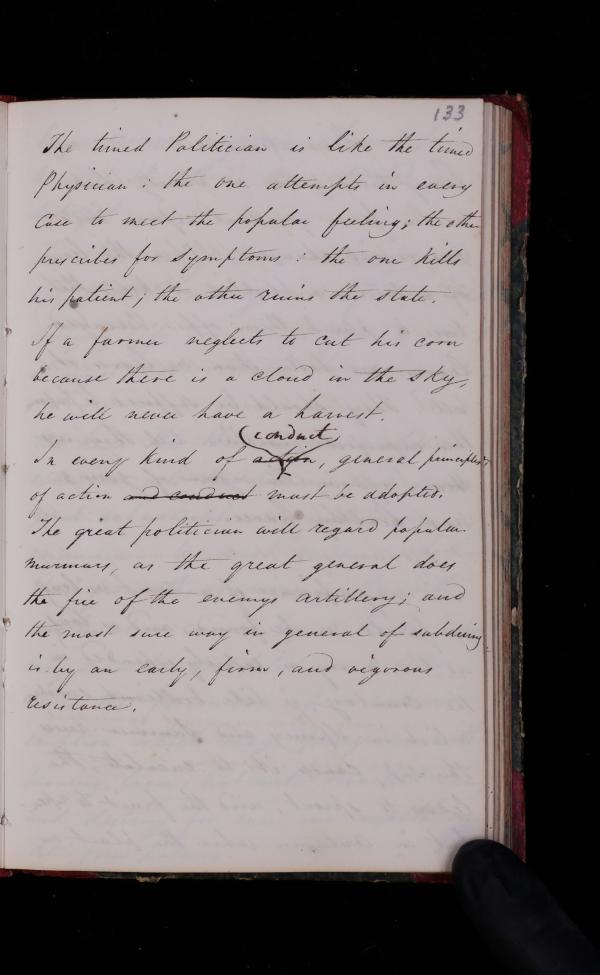 133
The timed Politician is like the timed
Physician: the one attempts in every
Case to meet the popular feeling; the other
prescribes for symptoms: the one kills
his patient; the other ruins the state.
If a farmer neglects to cut his corn
because there is a cloud in the sky,
he will never have a harvest.
(conduct)
In every kind of action, general principles
of action and conduct must be adopted.
The great politician will regard popular
murmurs, as the great general does
the fire of the enemys artillery; and
the most sure way in general of subduing
is by an early, firm, and vigorous
resistance.